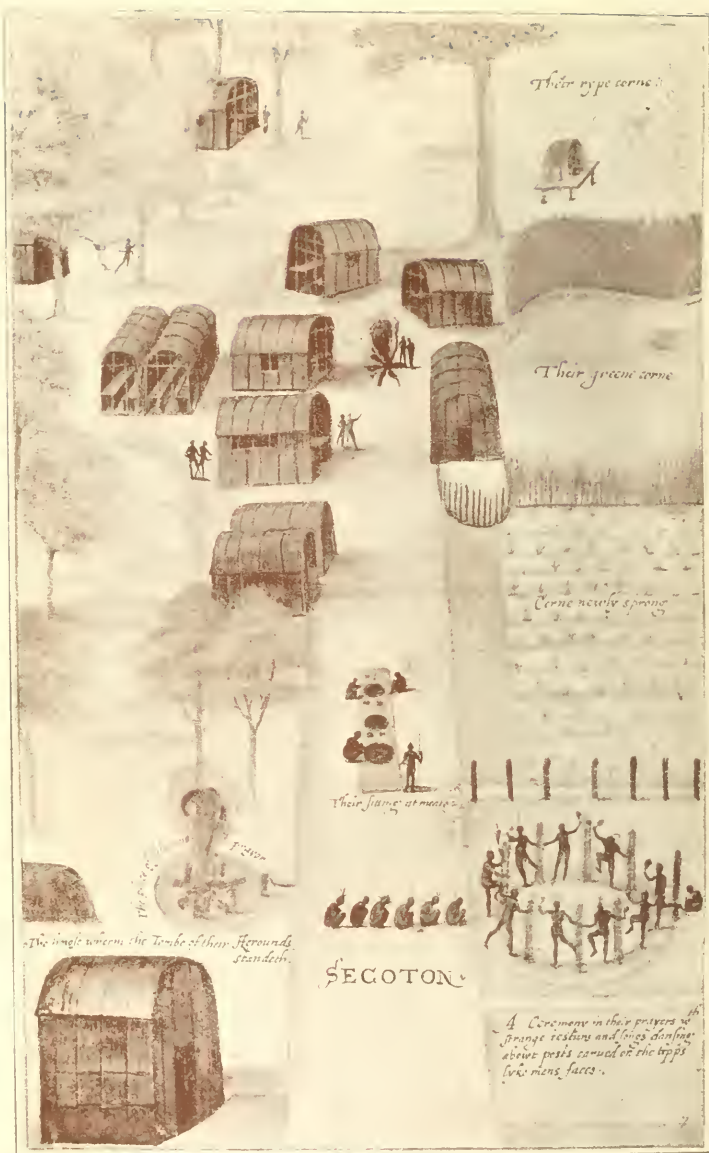 Their rype corne.
Their greene corne
Corne newly sprong
Their sitting at meate.
The place of prayer
The howse wherin the Tombe of their Herounds
standeth.
SECOTON.
A Ceremony in their prayers wth
strange iesturs and songs dansing
abowt posts carued on the topps
lyke mens faces.